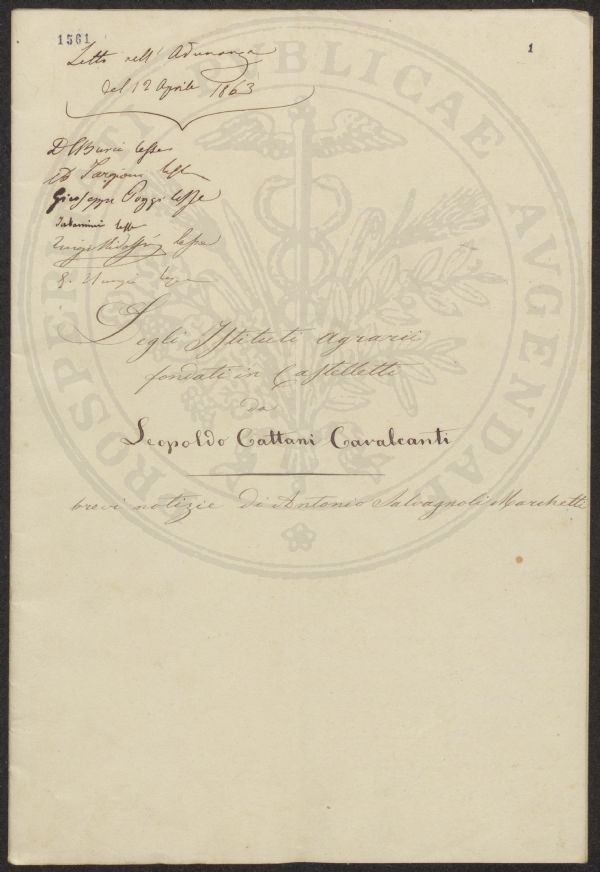 1361
1
Letto nell' Adunanza
del 12 Aprile 1863
lesse
Targioni
Giuseppe Poggi lesse
lesse
Luigi Ridolfi lesse
Degli Istituti agrarii
fondati in Castelletti
da
Leopoldo Cattani Cavalcanti
brevi notizie di Antonio Salvagnoli Marchetti
PROSPERITATI PUBLICAE AUGENDAE